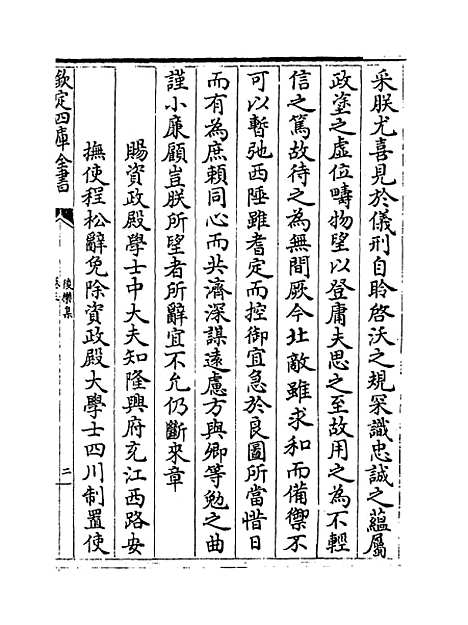 采朕尤喜見於儀刑自聆啓沃之規罙識忠誠之蘊屬
政塗之虛位疇物望以登庸夫思之至故用之為不輕
信之篤故待之為無間厥今北敵雖求和而備禦不
可以暫弛西陲雖耆定而控御宜急於良圖所當惜日
而有為庶頼同心而共濟深謀遠慮方與卿等勉之曲
謹小廉顧豈朕所望者所辭宜不允仍斷來章
賜資政殿學士中大夫知隆興府充江西路安
撫使程松辭免除資政殿大學士四川制置使
欽定四庫全書
後樂集
卷三
二